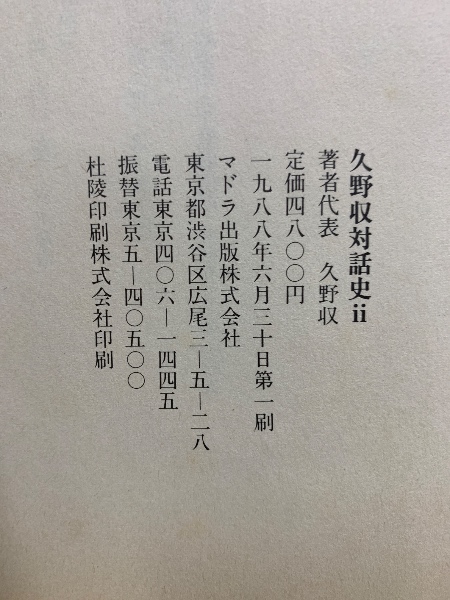 久野収対話史ii
著者代表　久野収
定価四八〇〇円
一九八八年六月三十日第一刷
マドラ出版株式会社
東京都渋谷区広尾三―五―二八
電話東京四〇六―一四四五
振替東京五―四〇五〇〇
杜陵印刷株式会社印刷